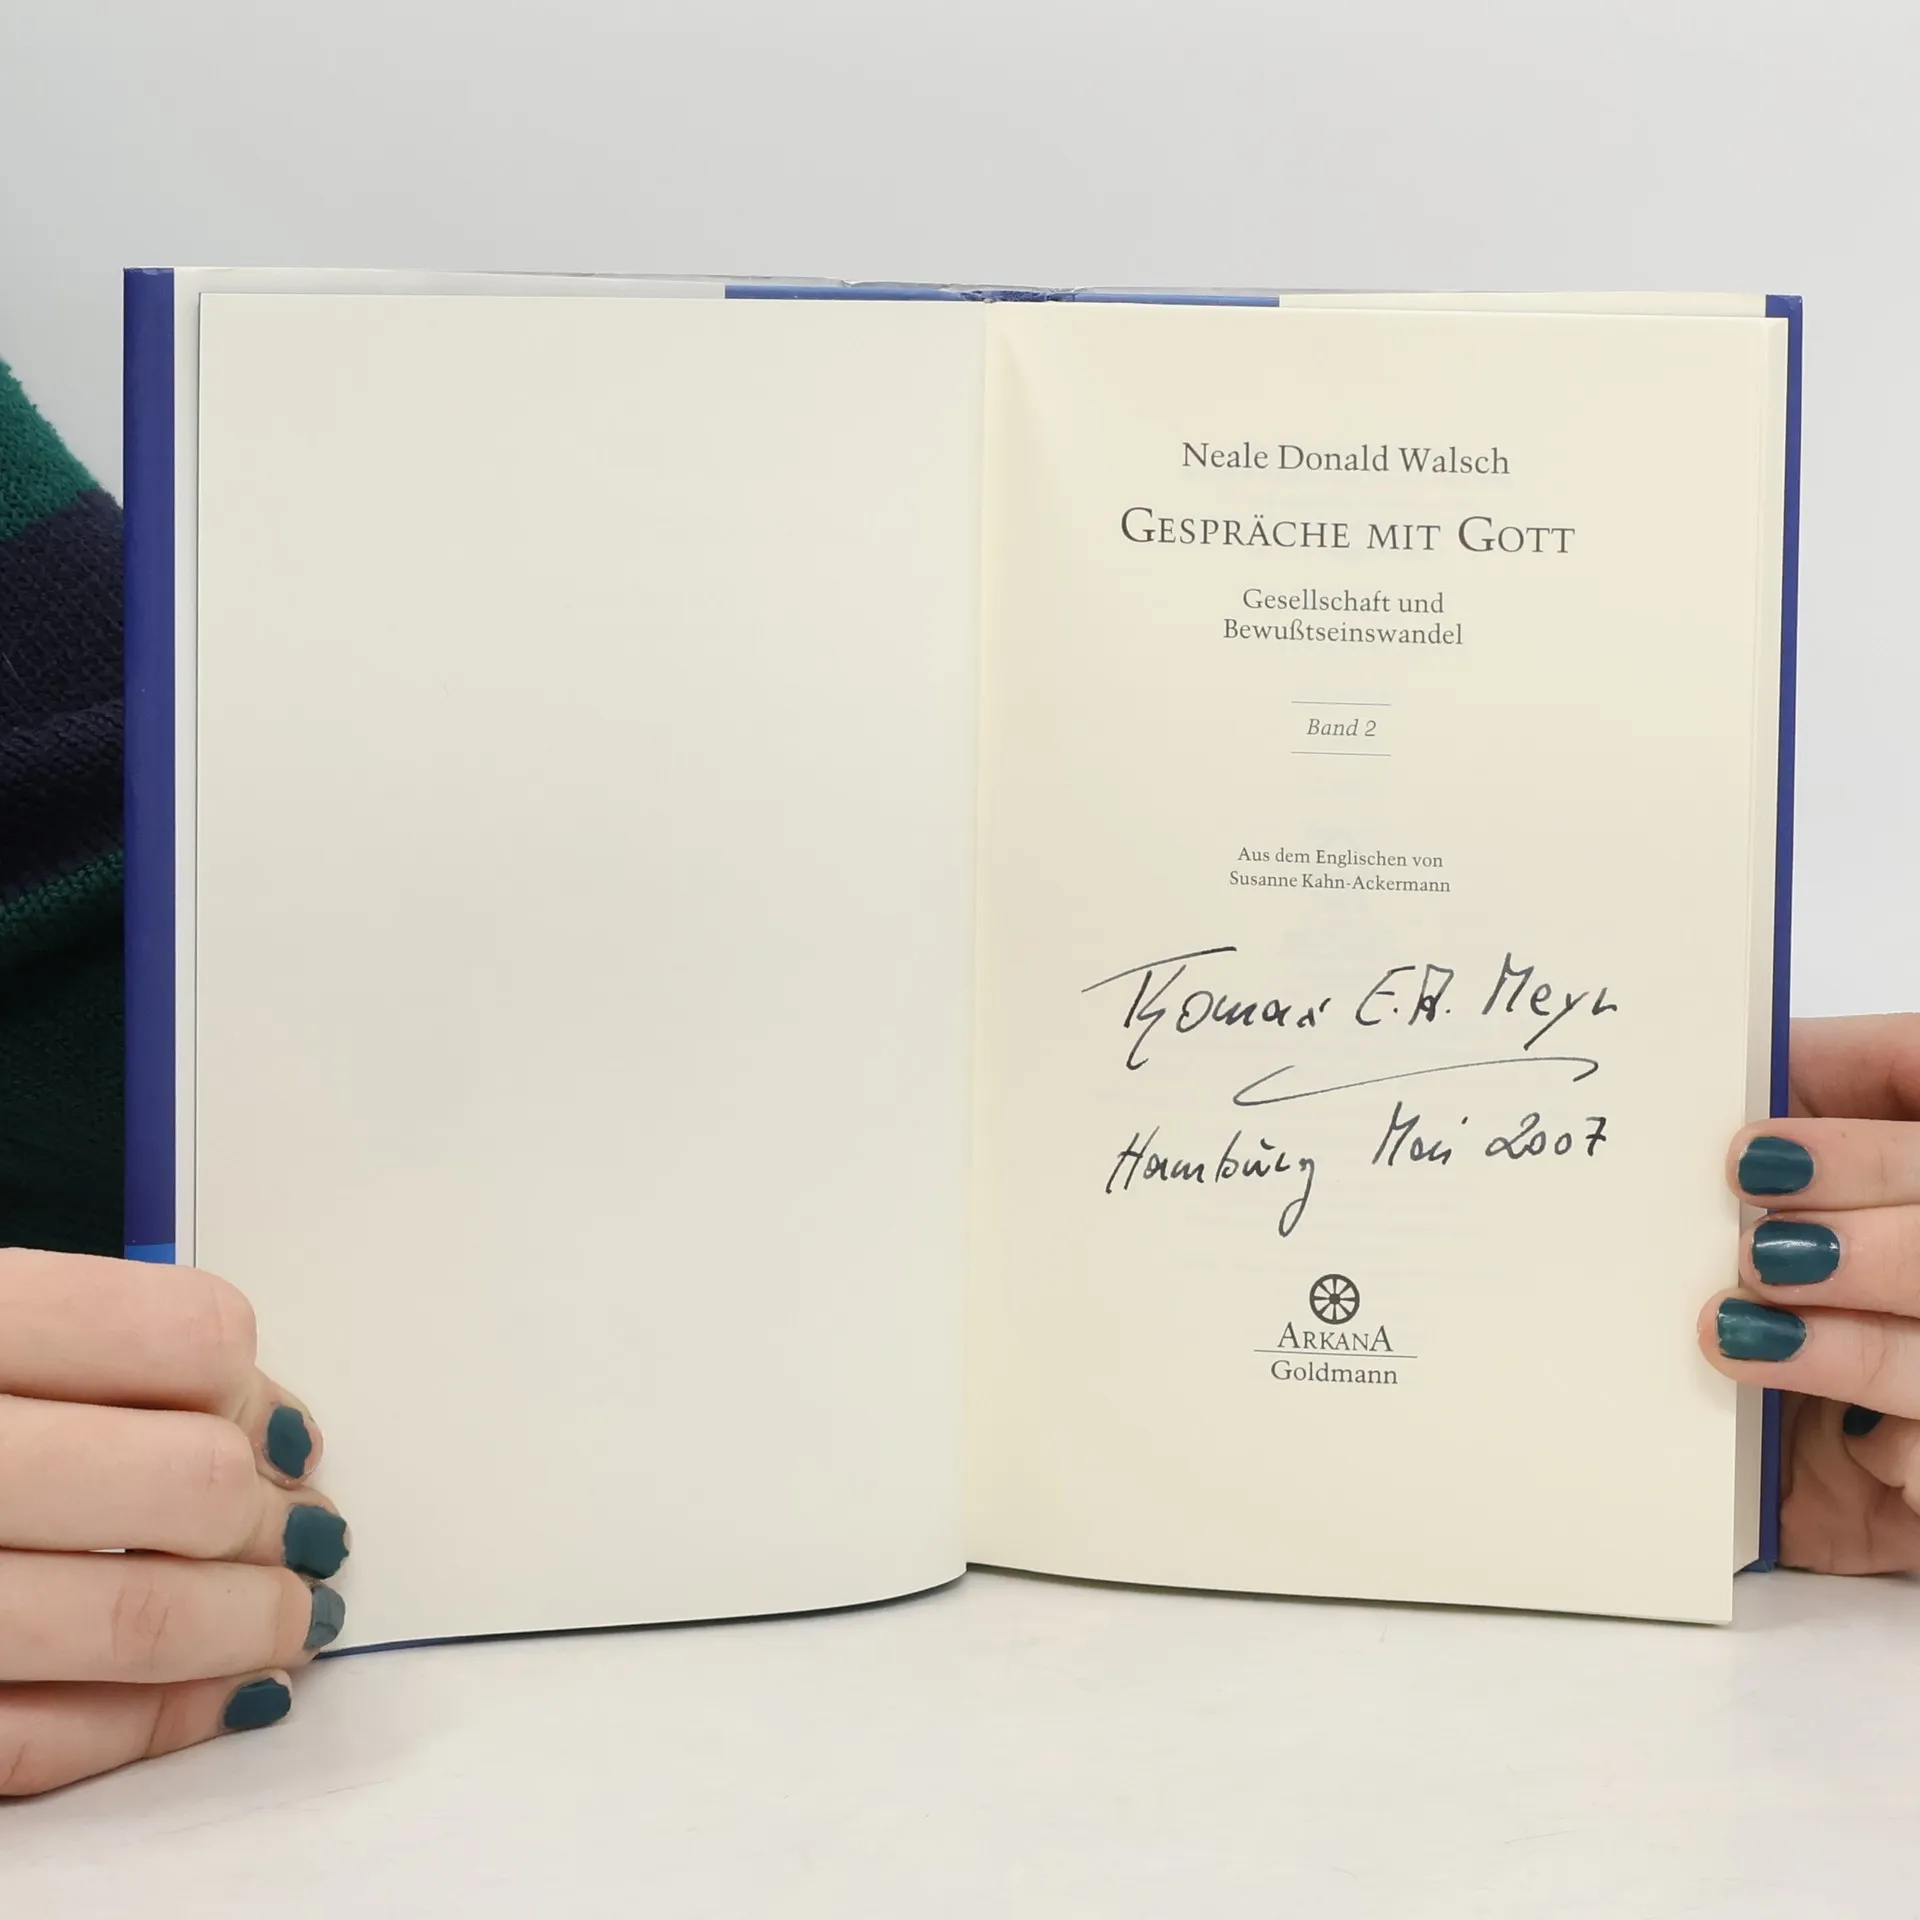 Neale Donald Walsch
GESPRÄCHE MIT GOTT
Gesellschaft und
Bewußtseinswandel
Band 2
Aus dem Englischen von
Susanne Kahn-Ackermann
Thomas E.A. Meyn
Hamburg Mai 2007
ARKANA
Goldmann